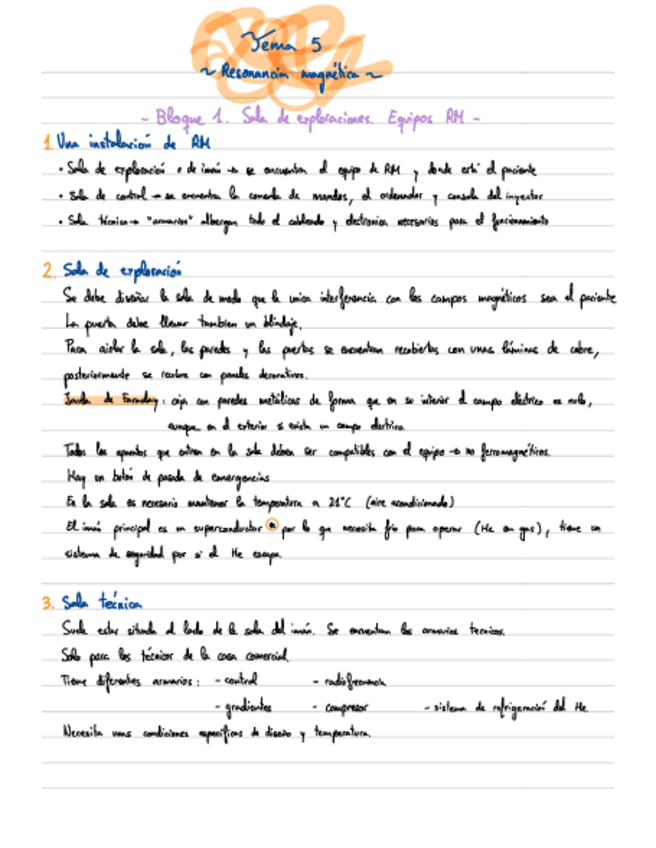 Tema 5
~ Resonancia magnética ~
- Bloque 1. Sala de exploraciones. Equipos RM -
1. Una instalación de RM
· Sala de exploración o de imán → se encuentran el equipo de RM y donde está el paciente
· Sala de control → se encuentra la consola de mandos, el ordenador y consola del inyector
· Sala técnica → "armarios" albergan todo el cableado y electronica necesarios para el funcionamiento
2. Sala de exploración
Se debe diseñar la sala de modo que la unica interferencia con los campos magnéticos sea el paciente
La puerta debe llevar tambien un blindaje.
Para aislar la sala, las paredes y las puertas se encuentran recubiertas con unas láminas de cobre,
posteriormente se recubre con paneles decorativos.
Jaula de Faraday: caja con paredes metálicas de forma que en su interior el campo eléctrico es nulo,
aunque en el exterior si exista un campo electrico.
Todos los aparatos que entren en la sala deben ser compatibles con el equipo → no ferromagnéticos.
Hay un botón de parada de emergencias
En la sala es necesario mantener la temperatura a 21°C (aire acondicionado)
El imán principal es un superconductor * por lo que necesita frío para operar (He en gas), tiene un
sistema de seguridad por si el He escapa.
3. Sala tecnica
Suele estar situada al lado de la sala del imán. Se encuentran los armarios tecnicos.
Solo para los técnicos de la casa comercial.
Tiene diferentes armarios: - control - radiofrecuencia
- gradientes - compresor - sistema de refrigeración del He.
Necesita unas condiciones específicas de diseño y temperatura.